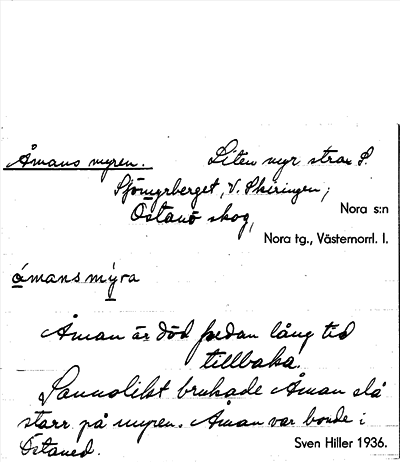 Åmans myren. Liten myr strax S.
Sjömyrberget, V. Skiringen,
Östanö skog,
Nora s:n
Nora tg., Västernorrl. l.
åmansmýra
Åman är död sedan lång tid
tillbaka.
Sannolikt brukade Åman slå
starr på myren. Åman var bonde i
Östanö.
Sven Hiller 1936.